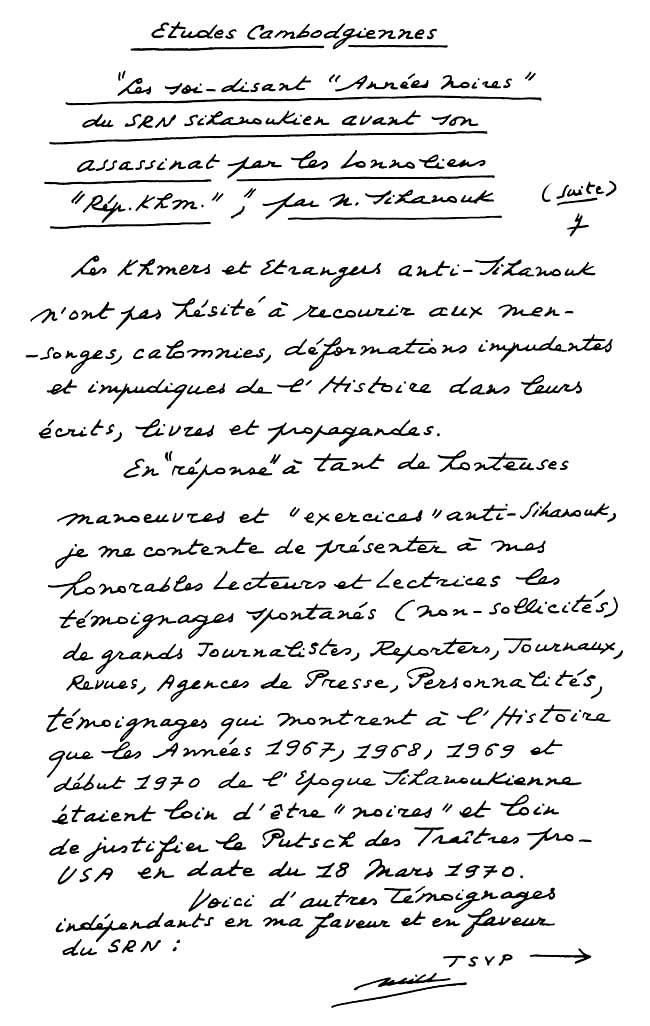 Etudes Cambodgiennes
"Les soi-disant "Années Noires"
du SRN Sihanoukien avant son
assassinat par les Lonnoliens
"Rép. Khm.", " par N. Sihanouk
(suite)
7
Les Khmers et Etrangers anti-Sihanouk
n'ont pas hésité à recourir aux men-
-songes, calomnies, déformations impudentes
et impudiques de l'Histoire dans leurs
écrits, livres et propagandes.
En "réponse" à tant de honteuses
manoeuvres et "exercices" anti-Sihanouk,
je me contente de présenter à mes
honorables Lecteurs et Lectrices les
témoignages spontanés (non-sollicités)
de grands Journalistes, Reporters, Journaux,
Revues, Agences de Presse, Personnalités,
témoignages qui montrent à l'Histoire
que les Années 1967, 1968, 1969 et
début 1970 de l'Epoque Sihanoukienne
étaient loin d'être "noires" et loin
de justifier le Putsch des Traîtres pro-
USA en date du 18 Mars 1970.
Voici d'autres Témoignages
indépendants en ma faveur et en faveur
du SRN :
TSVP →